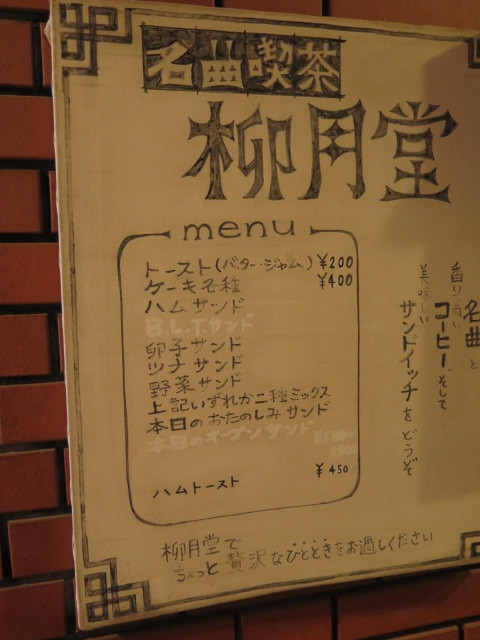 名曲喫茶
柳月堂
menu
トースト(バター・ジャム) ¥200
ケーキ各種 ¥400
ハムサンド
B.L.T.サンド
卵子サンド
ツナサンド
野菜サンド
上記いずれか二種ミックス
本日のおたのしみサンド
本日のオープンサンド
¥450
ハムトースト
名曲と
香り高い
コーヒー、そして
美味しい
サンドイッチをどうぞ
柳月堂で
ちょっと贅沢なひとときをお過しください